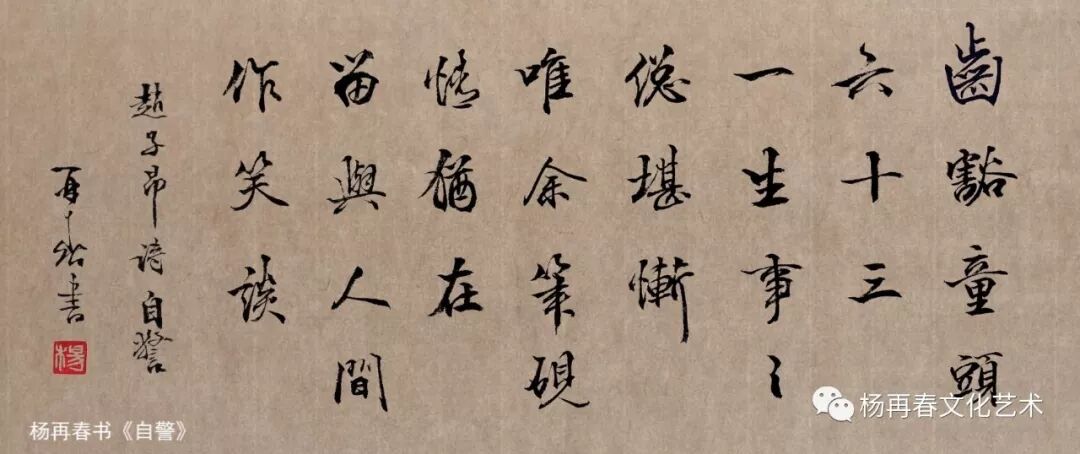 齒豁童頭
六十三
一生事〻
總堪慚
唯余筆硯
情猶在
留與人間
作笑談
趙子昂詩自警
再春書
楊
杨再春书《自警》
杨再春文化艺术